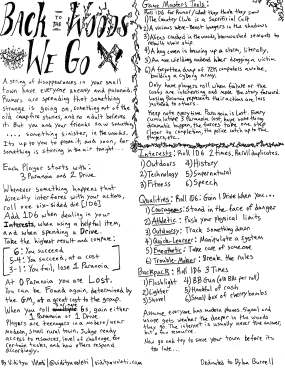 BACK TO THE WOODS
WE GO
A string of disappearances in your small
town have everyone uneasy and paranoid.
Rumors are spreading that something
strange is going on, something out at the
old campfire stones, and no adult believes
it. But you and your friends saw something
.... something sinister, in the woods.
It's up to you to prove it, and soon, for
something is stirring below... tonight...
Each Player starts with:
3 Paranoia and 2 Drive.
Whenever something happens that
directly interferes with your action,
roll one six-sided die (1D6).
Add 1D6 when dealing in your
Interests, when using a helpful item,
and when spending a Drive.
Take the highest result and compare:
6: You succeed
5-4: You succeed, at a cost
3-1: You fail, lose 1 Paranoia
At 0 Paranoia you are Lost.
You can be Found again, determined by
the GM, at a great cost to the group.
When you roll multiple 6s, gain either
1 Paranoia or 1 Drive.
Players are teenagers in a modern/near-
modern, small rural town. Judge ready
access to resources, level of challenge for
certain tasks, and how others respond
accordingly.
By Viditya Voleti | @vidityavoleti | vidityavoleti.com
Game Masters Tools:
Roll 1D6 for Rumor / what they think they saw
1) The Country Club is a Sacrificial Cult
2) A vicious were-beast lingers in the shadows
3) Aliens crashed in the woods, brainwashed servants to
rebuild their ship
4) A key coven is brewing up a storm, literally,
5) An axe wielding masked killer chopping a victim
6) A forgotten dump of 70's computers awoke,
building a cyborg army.
Only have players roll when failure or the
costs are interesting and narratively forward.
Losing Paranoia represents their actions are less
justifiable to others.
Interests: Roll 1D6 2 times, Reroll duplicates.
1) Outdoors 4) History
2) Technology 5) Supernatural
3) Fitness 6) Speech
Qualities: Roll 1D6: Gain 1 Drive when you...
1) Courageous: Stand in the face of danger
2) Athletic: Push your physical limits
3) Outdoorsy: Track something down
4) Quick-Learner: Manipulate a system
5) Empathetic: Take care of someone
6) Trouble-Maker: Break the rules
Backpack: Roll 1D6 3 Times
1) Flashlight 4) BB Gun (w/ BBs per roll)
2) Lighter 5) Handful of cash
3) Shovel 6) Small box of cherry bombs
Assume everyone has modern phones. Signal and
usage gets weaker the deeper in the woods
they go. The internet is usually never the answer,
but a fun resource.
Now go out and save your town before its
too late...
Dedicated to Dylan Burrell